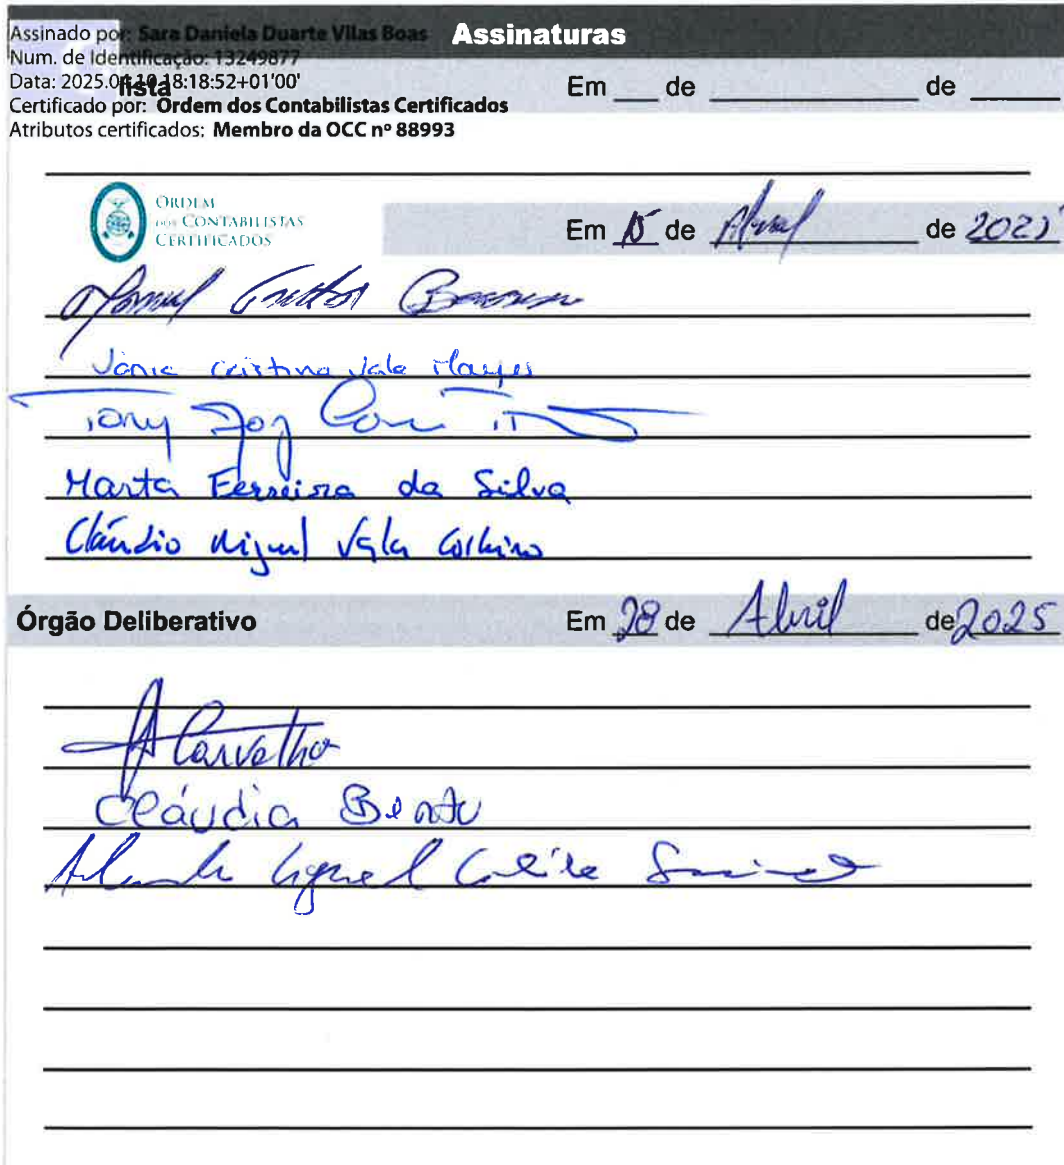 Assinado por: Sara Daniela Duarte Vilas Boas
Assinaturas
Num. de Identificação: 13249877
Data: 2025.04.10 18:18:52+01'00'
lista
Em ___ de ___ de ___
Certificado por: Ordem dos Contabilistas Certificados
Atributos certificados: Membro da OCC nº 88993
ORDEM
DOS CONTABILISTAS
CERTIFICADOS
Em 15 de Abril de 2025
Cristina Vale
Tony
Marta Ferreira da Silva
Cláudio Miguel Vale
Órgão Deliberativo
Em 28 de Abril de 2025
A Carvalho
Cláudia Bento